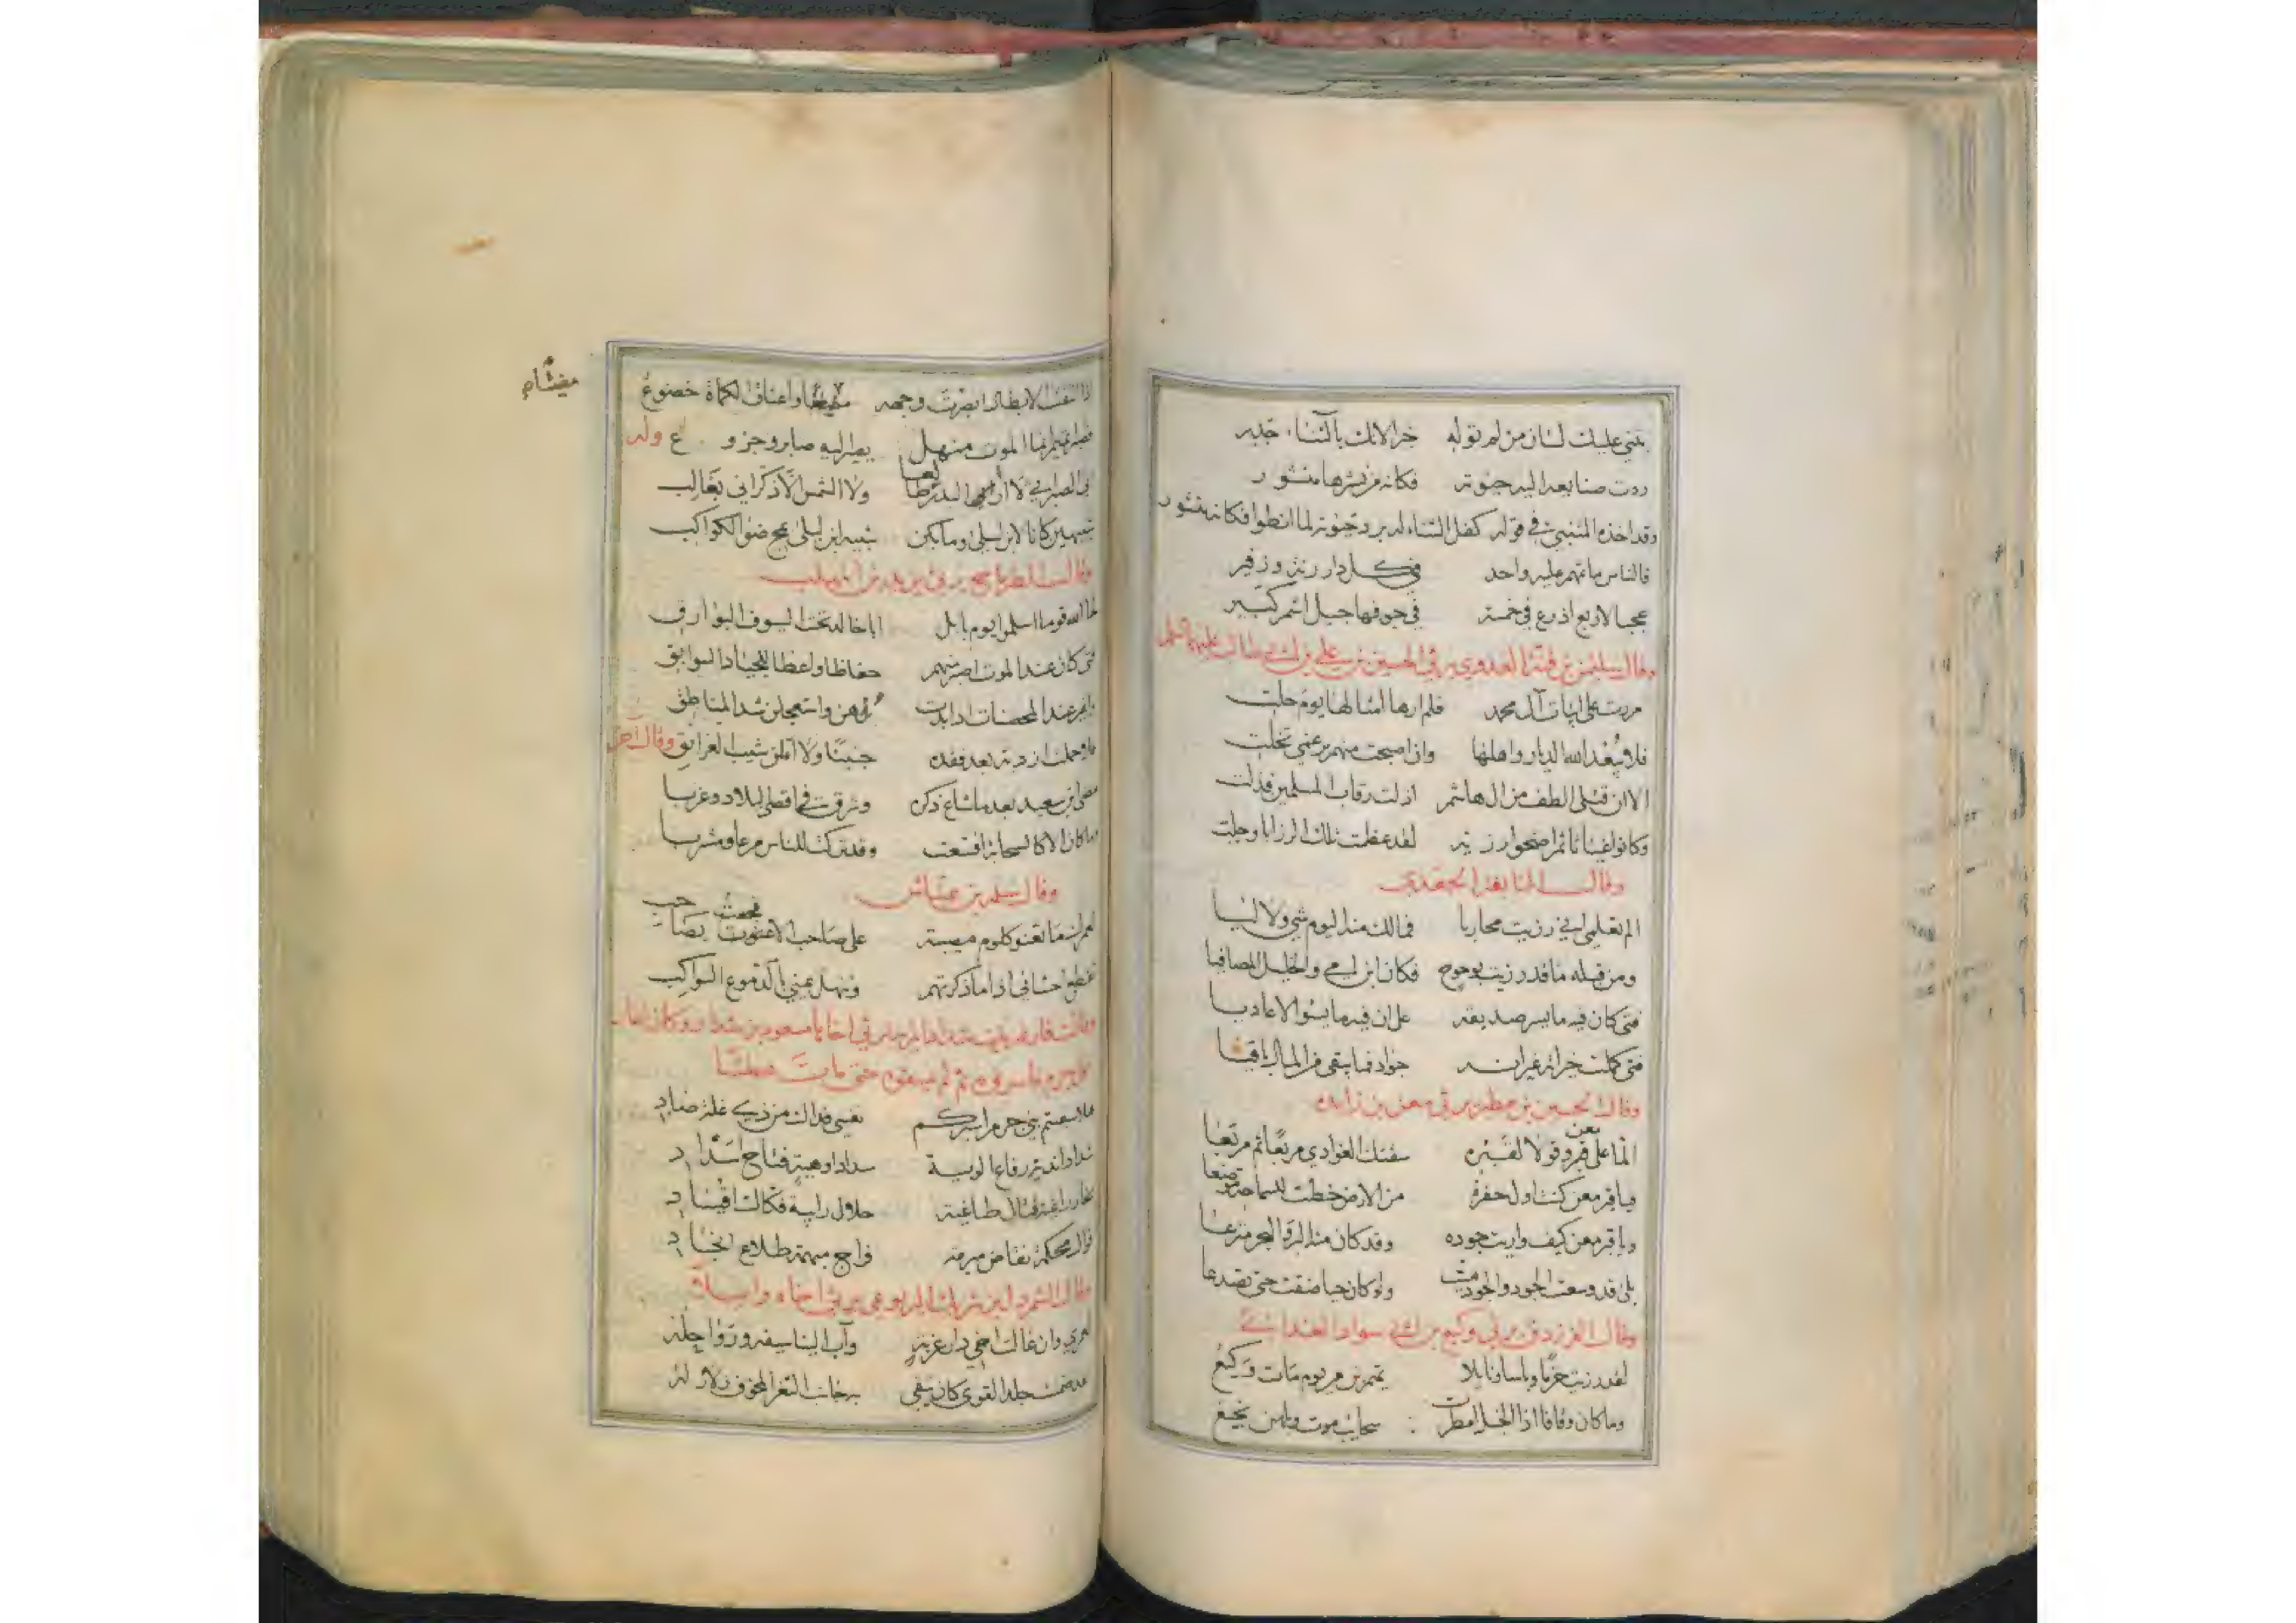 يثني عليك لسان من لم توله خيرا لانك بالثناء جدير
ردت صنايعه اليه حيوته فكانه من نشرها منشور
وقد اخذه المتنبي في قوله كفل الثناء له برد حيوته لما انطوا فكانه منشور
فالناس ماتمهم عليه واحد في كل دار رنة وزفير
عجبا لاربع اذرع في خمسة في جوفها جبل اشم كبير
وقال سليمن بن قتة العدوي يرثي الحسين بن علي بن ابي طالب عليهما السلم
مررت على ابيات آل محمد فلم ارها امثالها يوم حلت
فلا يبعد الله الديار واهلها وان اصبحت منهم برغمي تخلت
الا ان قتلى الطف من ال هاشم اذلت رقاب المسلمين فذلت
وكانوا غياثا ثم اضحوا رزية لقد عظمت تلك الرزايا وجلت
وقال النابغة الجعدي
الم تعلمي اني رزيت محاربا فمالك منه اليوم شي ولا ليا
ومن قبله ما قد رزيت بوحوح فكان ابن امي والخليل المصافيا
فتى كان فيه ما يسر صديقه على ان فيه ما يسوا الاعاديا
فتى كملت خيراته غير انه جواد فما يبقي من المال باقيا
وقال الحسين بن مطير يرثي معن بن زائده
الما على معن وقولا لقبره سقتك الغوادي مربعا ثم مربعا
فيا قبر معن كنت اول حفرة من الارض خطت للسماحة موضعا
ويا قبر معن كيف واريت جوده وقد كان منه البر والبحر مترعا
بلى قد وسعت الجود والجود ميت ولو كان حيا ضقت حتى تصدعا
وقال الفرزدق يرثي وكيع بن ابي سواد الغداني
لقد رزيت حزما وباسا ونايلا تميم بن مر يوم مات وكيع
وما كان وقافا اذا الخيل امطرت سحايب موت وبلهن نجيع
مغتام
اذا التقت الابطال ابصرت وجهه واعناق الكماة خضوع
الموت منهل يصير اليه صابر وجزوع وله
ابى الصبر اني لا ارى البدر طالعا ولا الشمس الا ذكراني بغالب
شبيهين كانا لابن ليلى ومن يكن شبيه ابن ليلى يمح ضو الكواكب
وقال الطرماح يرثي يزيد بن المهلب
لحا الله قوما اسلموا يوم بابل ابا خالد تحت السيوف البوارق
فتى كان عند الموت اصبر منهم حفاظا واعطا للجياد السوابق
واغير عند المحصنات اذا بدت برهن واستعجلن شد المناطق
فما حملت ازدية بعد فقده جنينا ولا املن شيب الغرانق وقال آخر
مضى ابن سعيد بعد ما شاع ذكره وشرق في اقصى البلاد وغربا
وما كان الا كالسحابة اقشعت وقد تركت للناس مرعا ومشربا
على صاحب الا فجعت بصاحب
تقطع احشائي اذا ما ذكرتهم وتنهل عيني بالدموع السواكب
وقالت فارعة بنت شداد المرية ترثي اخاها مسعود بن شداد
هلا سقيتم بني جرم اسيركم نفسي فداك من ذي غلة صادي
شهاد اندية رفاع الوية سداد اوهية فتاح اسداد
نحار راغية قتال طاغية حلال رابية فكاك اقياد
قوال محكمة نقاض مبرمة فراج مبهمة طلاع انجاد
وقال الشمردل بن شريك اليربوعي يرثي اخاه وايلا
لعمري وان غالت اخي دار غربة وآب الينا سيفه ورواحله
جلد القوى كان يتقى به جانب الثغر المخوف زلازله